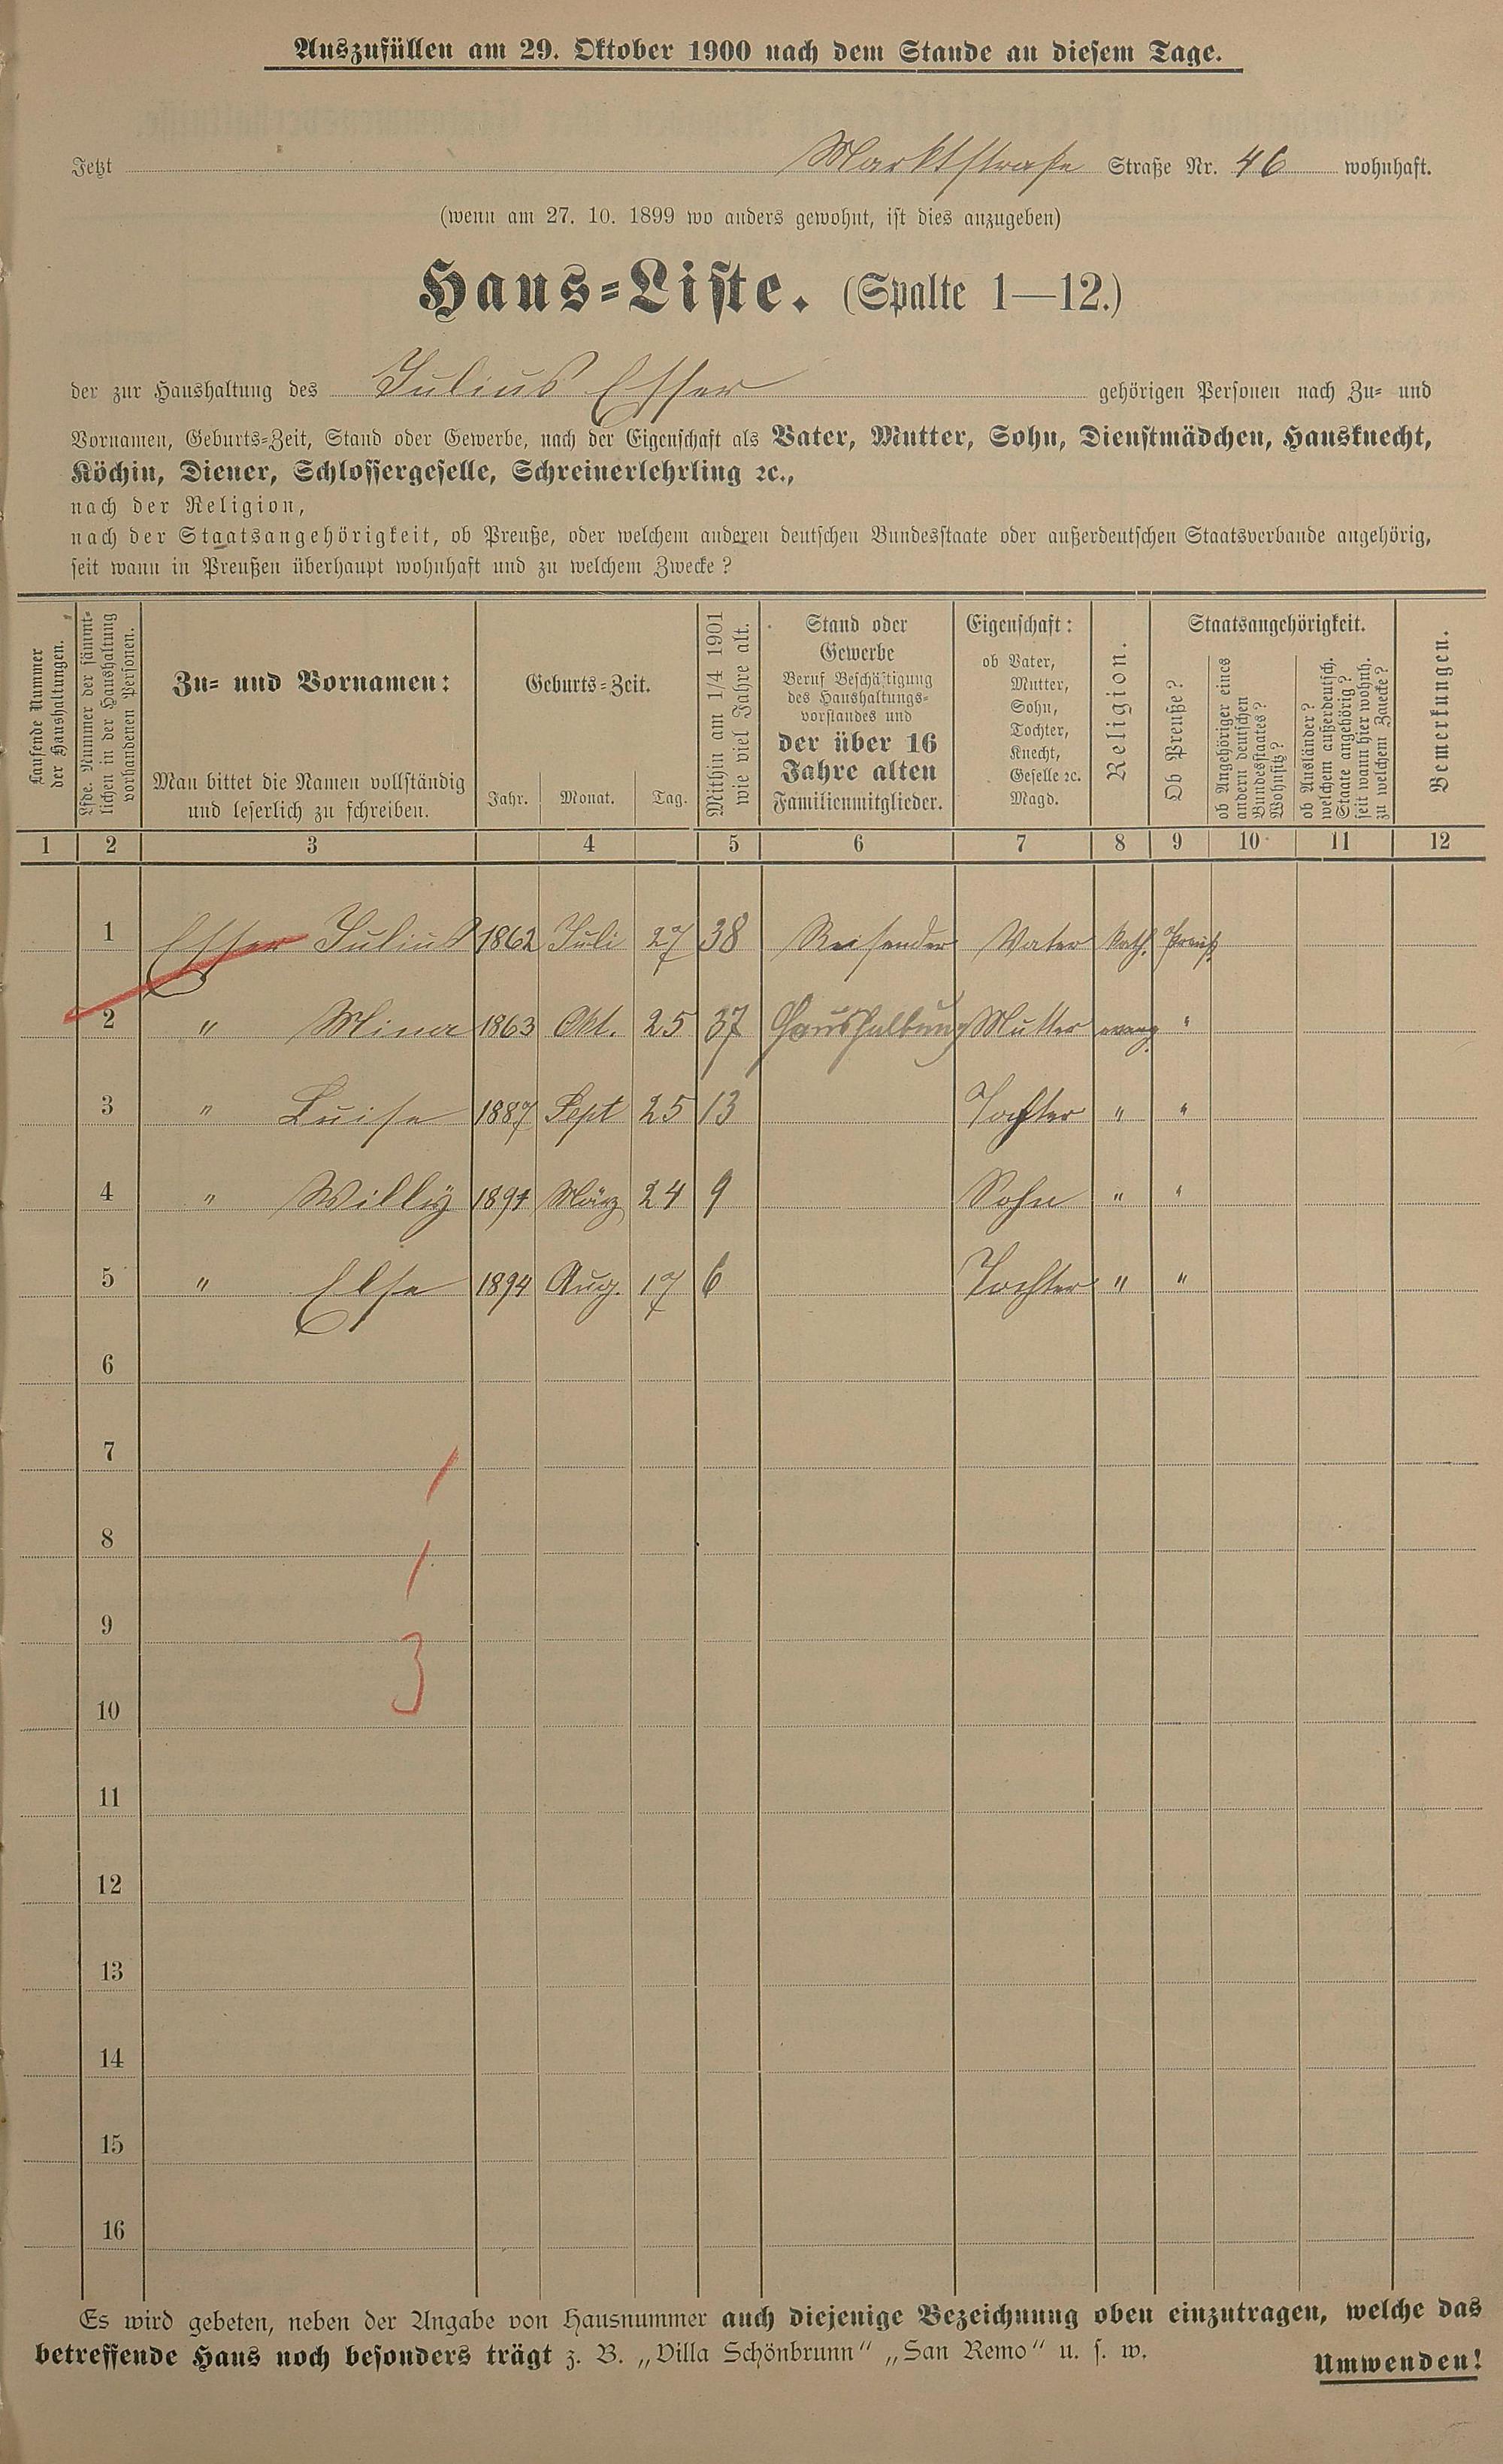 Auszufüllen am 29. Oktober 1900 nach dem Stande an diesem Tage.
Jetzt Marktstraße Straße Nr. 46 wohnhaft.
(wenn am 27. 10. 1899 wo anders gewohnt, ist dies anzugeben)
Haus-Liste. (Spalte 1—12.)
der zur Haushaltung des Julius Esser gehörigen Personen nach Zu- und
Vornamen, Geburts-Zeit, Stand oder Gewerbe, nach der Eigenschaft als Vater, Mutter, Sohn, Dienstmädchen, Hausknecht,
Köchin, Diener, Schlossergeselle, Schreinerlehrling ꝛc.,
nach der Religion,
nach der Staatsangehörigkeit, ob Preuße, oder welchem anderen deutschen Bundesstaate oder außerdeutschen Staatsverbande angehörig,
seit wann in Preußen überhaupt wohnhaft und zu welchem Zwecke?
Laufende Nummer
der Haushaltungen.
Lfde. Nummer der sämmt-
lichen in der Haushaltung
vorhandenen Personen.
Zu- und Vornamen:
Man bittet die Namen vollständig
und leserlich zu schreiben.
Geburts-Zeit.
Jahr. Monat. Tag.
Mithin am 1/4 1901
wie viel Jahre alt.
Stand oder
Gewerbe
Beruf Beschäftigung
des Haushaltungs-
vorstandes und
der über 16
Jahre alten
Familienmitglieder.
Eigenschaft:
ob Vater,
Mutter,
Sohn,
Tochter,
Knecht,
Geselle ꝛc.
Magd.
Religion.
Staatsangehörigkeit.
Ob Preuße?
ob Angehöriger eines
andern deutschen
Bundesstaates?
Wohnsitz?
ob Ausländer?
welchem außerdeutsch.
Staate angehörig?
seit wann hier wohnh.
zu welchem Zwecke?
Bemerkungen.
1 2 3 4 5 6 7 8 9 10 11 12
1 Esser Julius 1862 Juli 27 38 Reisender Vater kath. Preuß.
2 " Mina 1863 Okt. 25 37 Haushaltung Mutter evang. "
3 " Luise 1887 Sept 25 13 Tochter " "
4 " Willÿ 1891 März 24 9 Sohn " "
5 " Else 1894 Aug. 17 6 Tochter " "
6
7
1
8
1
9
3
10
11
12
13
14
15
16
Es wird gebeten, neben der Angabe von Hausnummer auch diejenige Bezeichnung oben einzutragen, welche das
betreffende Haus noch besonders trägt z. B. „Villa Schönbrunn" „San Remo" u. s. w.
Umwenden!